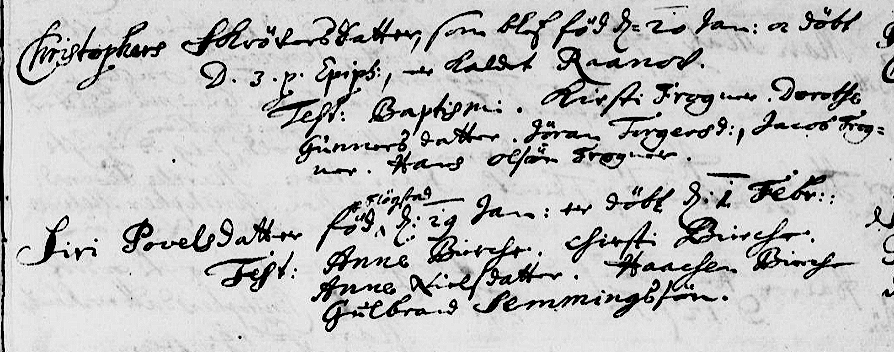 Christophers Skrövers datter, som blef föd d: 20 Jan: oc döbt
D. 3. p. Epiph:, er kaldet Raanov.
Test: Baptismi. Kirsti Frogner. Dorothe
Gunners datter. Jöran Torgersd:, Jacob Frog=
ner. Hans Olsön Frogner.
Flögstad
Siri Povelsdatter föd d: 29 Jan: er döbt d: 1 Febr::
Test: Anne Bierche. Chirsti Bierche.
Anne Nielsdatter. Haachen Bierche
Gulbrand Semmingssön.